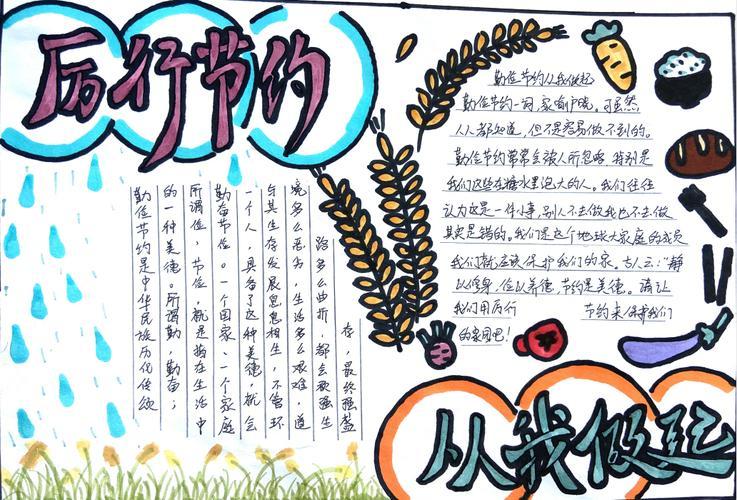 厉行节约
勤俭节约是中华民族历代传颂
的一种美德。所谓勤,勤奋;
所谓俭,节俭,就是指在生活中
勤奋节俭。一个国家、一个家庭
一个人,具备了这种美德,就会
与其生存发展息息相生,不管环
境多么恶劣,生活多么艰难,道
路多么曲折,都会顽强生
存,最终强盛
勤俭节约从我做起
勤俭节约一词,家喻户晓。可虽然
人人都知道,但不是容易做不到的。
勤俭节约常常会被人所忽略,特别是
我们这些在糖水里泡大的人。我们往往
认为这是一件小事,别人不去做我也不去做
其实是错的。我们是这个地球大家庭的成员
我们就应该保护我们的家。古人云:“静
以修身,俭以养德,节约是美德。请让
我们用厉行 节约来保护我们
的家园吧!
从我做起